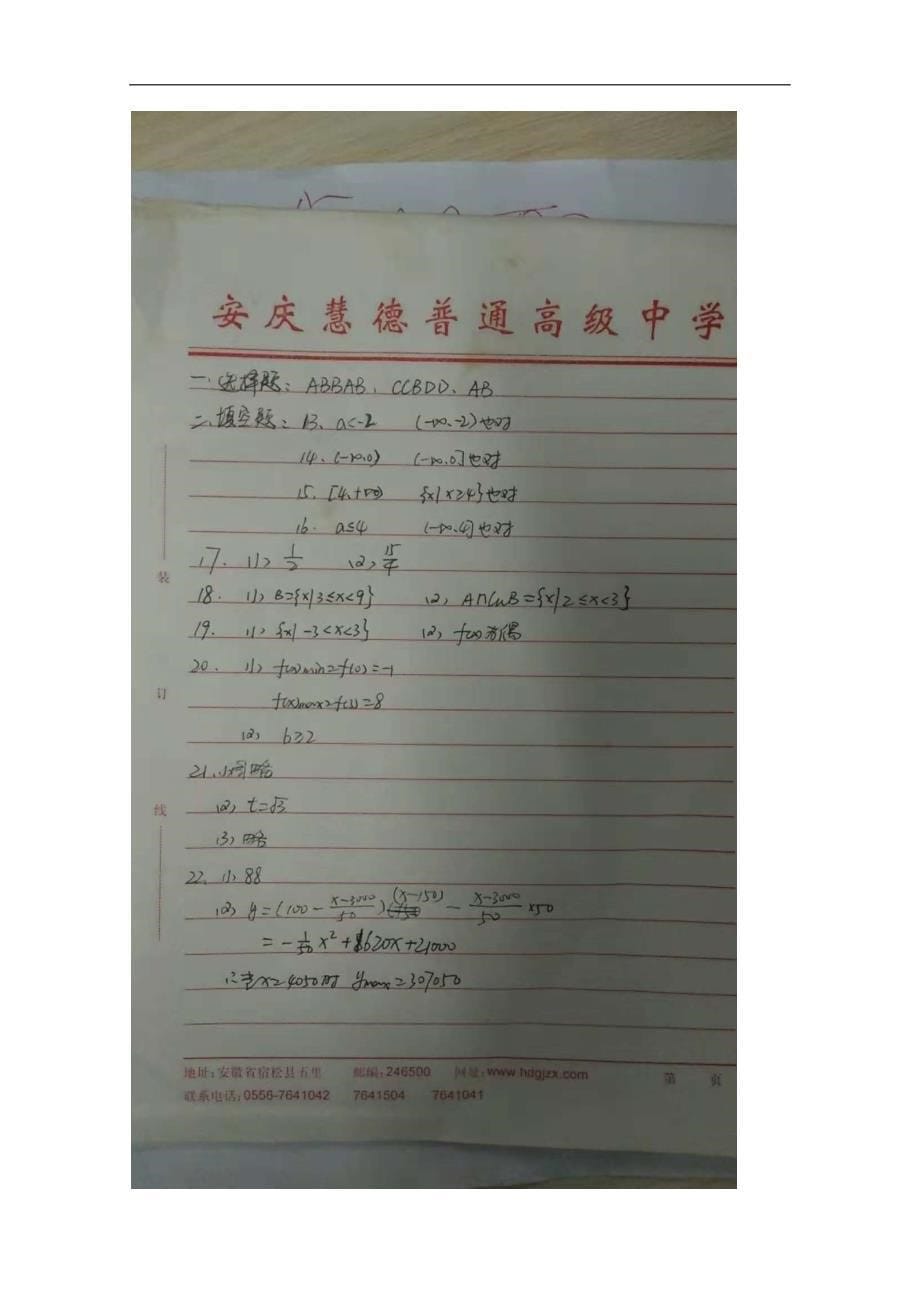 安庆慧德普通高级中学
一、选择题: ABBAB、CCBDD、AB
二、填空题: 13、a<-2 (-∞、-2)也对
14、(-∞.0) (-∞.0]也对
15、[4、+∞) {x|x≥4}也对
16. a≤4 (-∞.4]也对
17. (1) 1/2 (2) 15/4
装
18. (1) B={x|3≤x<9} (2) A∩CuB={x|2≤x<3}
19. (1) {x|-3<x<3} (2) f(x)为偶
20. (1) f(x)min=f(0)=-1
订
f(x)max=f(3)=8
(2) b≥2
21、(1)图略
(2) t=√3
线
(3) 略
22、(1) 88
(2) y=(100-(x-3000)/50)(x-150)-(x-3000)/50×50
=-1/50x²+1620x+21000
∴当x=4050时 ymax=307050
地址:安徽省宿松县五里 邮编:246500 网址:www.hdgjzx.com
第 页
联系电话:0556-7641042 7641504 7641041